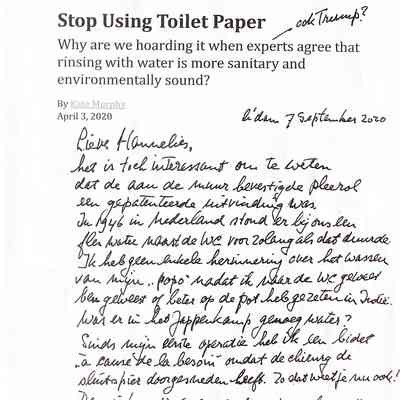 Stop Using Toilet Paper
ook Trump?
Why are we hoarding it when experts agree that
rinsing with water is more sanitary and
environmentally sound?
By Kate Murphy
April 3, 2020
7 September 2020
Lieve Hannelies,
het is toch interessant om te weten
dat de aan de muur bevestigde pleerol
een gepatenteerde uitvinding was
In 1946 in Nederland stond er bij ons een
fles water naast de WC voor zolang als dat duurde
Ik heb geen enkele herinnering over het wassen
van mijn "popo" nadat ik naar de WC geweest
ben geweest of beter op de pot heb gezeten in Indië.
Was er in het Jappenkamp genoeg water?
Sinds mijn eerste operatie heb ik een bidet
"à cause de la besoin" omdat de chirurg de
sluitspier doorgesneden heeft. Zo dat weet je nu ook!